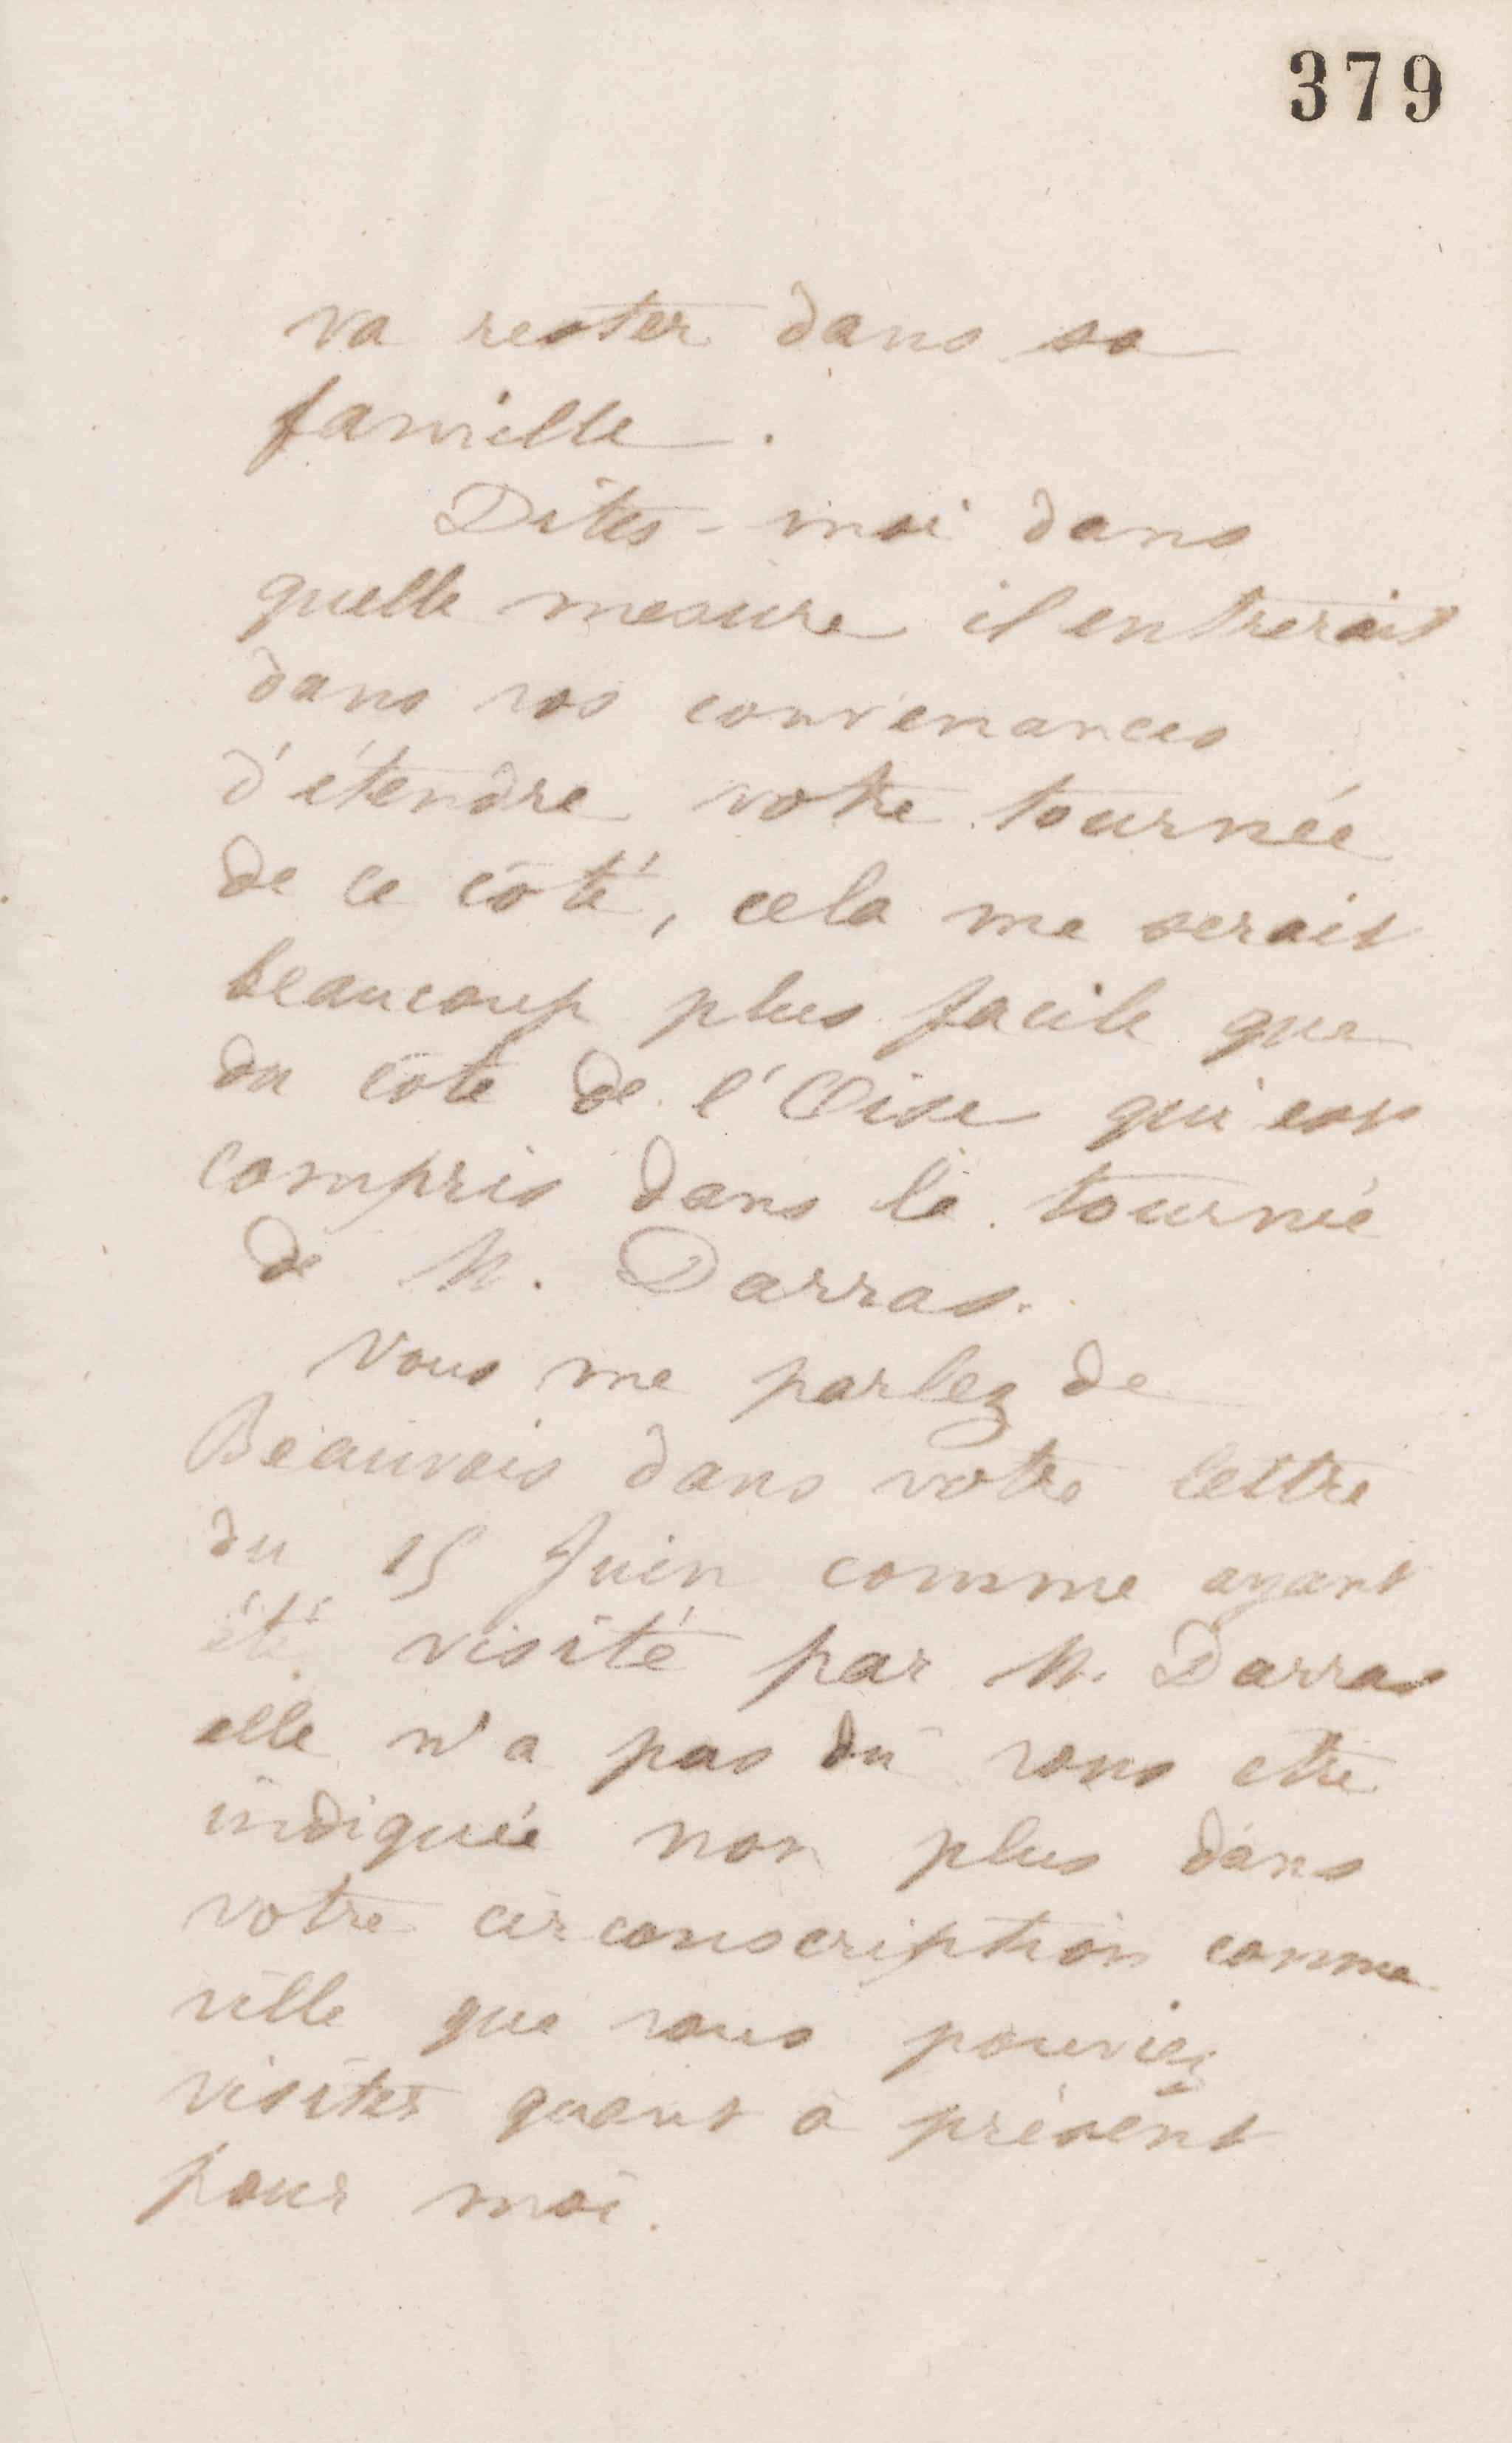 379
va rester dans sa
famille.
Dites-moi dans
quelle mesure il entrerait
dans vos convenances
d'étendre votre tournée
de ce côté, cela me serait
beaucoup plus facile que
du côté de l'Oise qui est
compris dans la tournée
de M. Darras.
Vous me parlez de
Beauvais dans votre lettre
du 15 Juin comme ayant
été visité par M. Darras
elle n'a pas dû vous etre
indiquée non plus dans
votre circonscription comme
ville que vous pouviez
visiter quant à présent
pour moi.